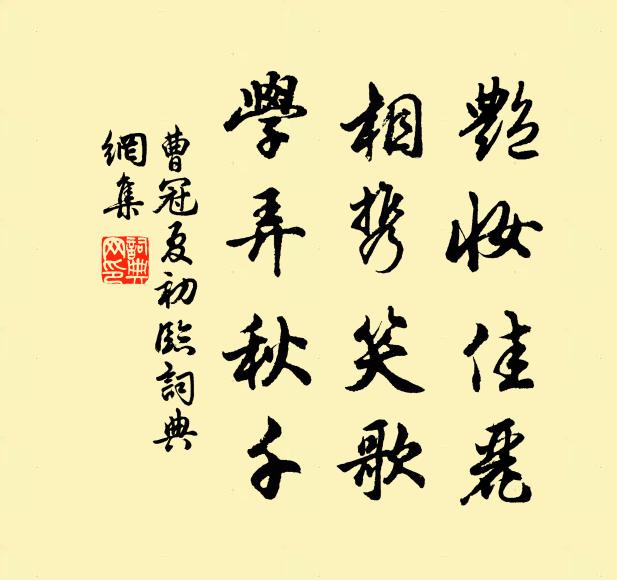 艷妝佳麗
相携笑歌
學弄秋千
曹冠夏初臨詞典
網集
詞典
网印